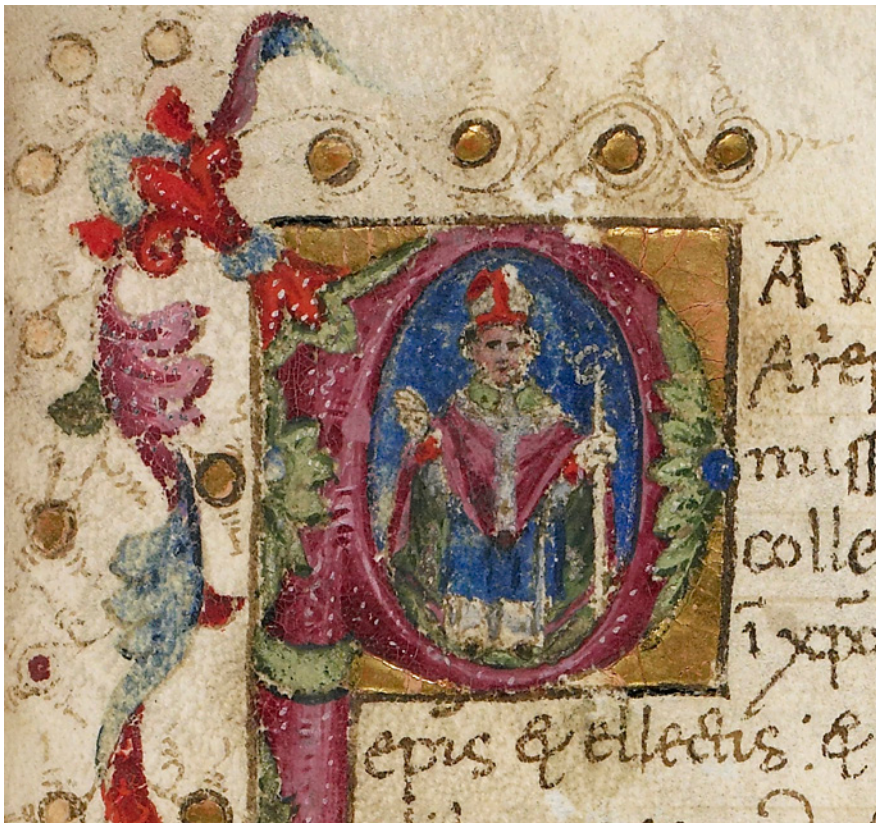 P AV
Arep
miss
colle
ī xp̄o
ep̄is & ellectis : &